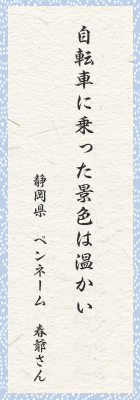 自転車に乗った景色は温かい
静岡県　ペンネーム　春爺さん